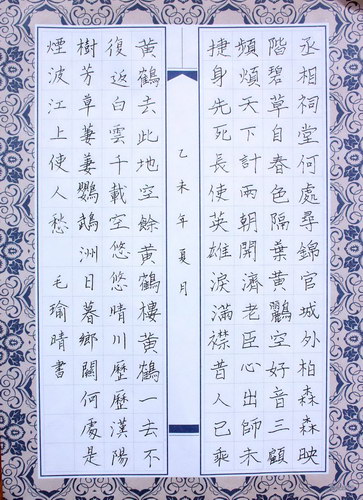 丞相祠堂何處尋錦官城外柏森森映
階碧草自春色隔葉黃鸝空好音三顧
頻煩天下計兩朝開濟老臣心出師未
捷身先死長使英雄淚滿襟昔人已乘
乙未年夏月
黃鶴去此地空餘黃鶴樓黃鶴一去不
復返白雲千載空悠悠晴川歷歷漢陽
樹芳草萋萋鸚鵡洲日暮鄉關何處是
煙波江上使人愁 毛瑜晴書